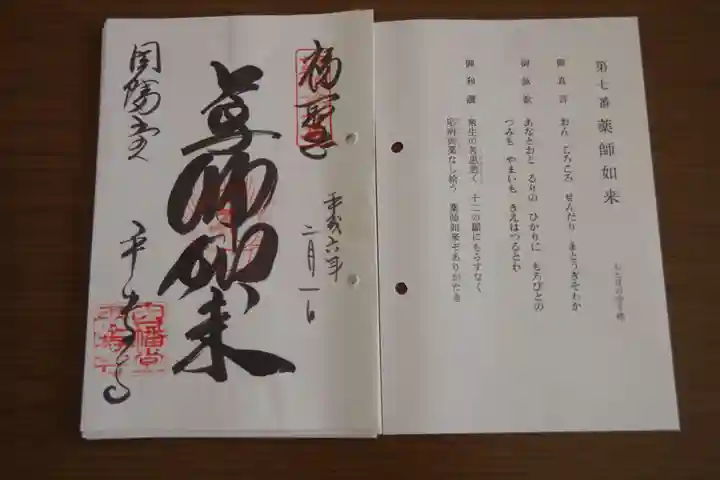 第七番 薬師如来
御真言 おん ころころ せんだり まとうぎそわか
御詠歌 あなとおと るりの ひかりに もろびとの
つみも やまいも きえはつるとわ
御和讃 衆生の
十二の願にもらすなく
なし給う 薬師如来ぞありがたき
平成六年
二月一日
薬師如来
因幡堂
平等寺
因幡堂
平等寺